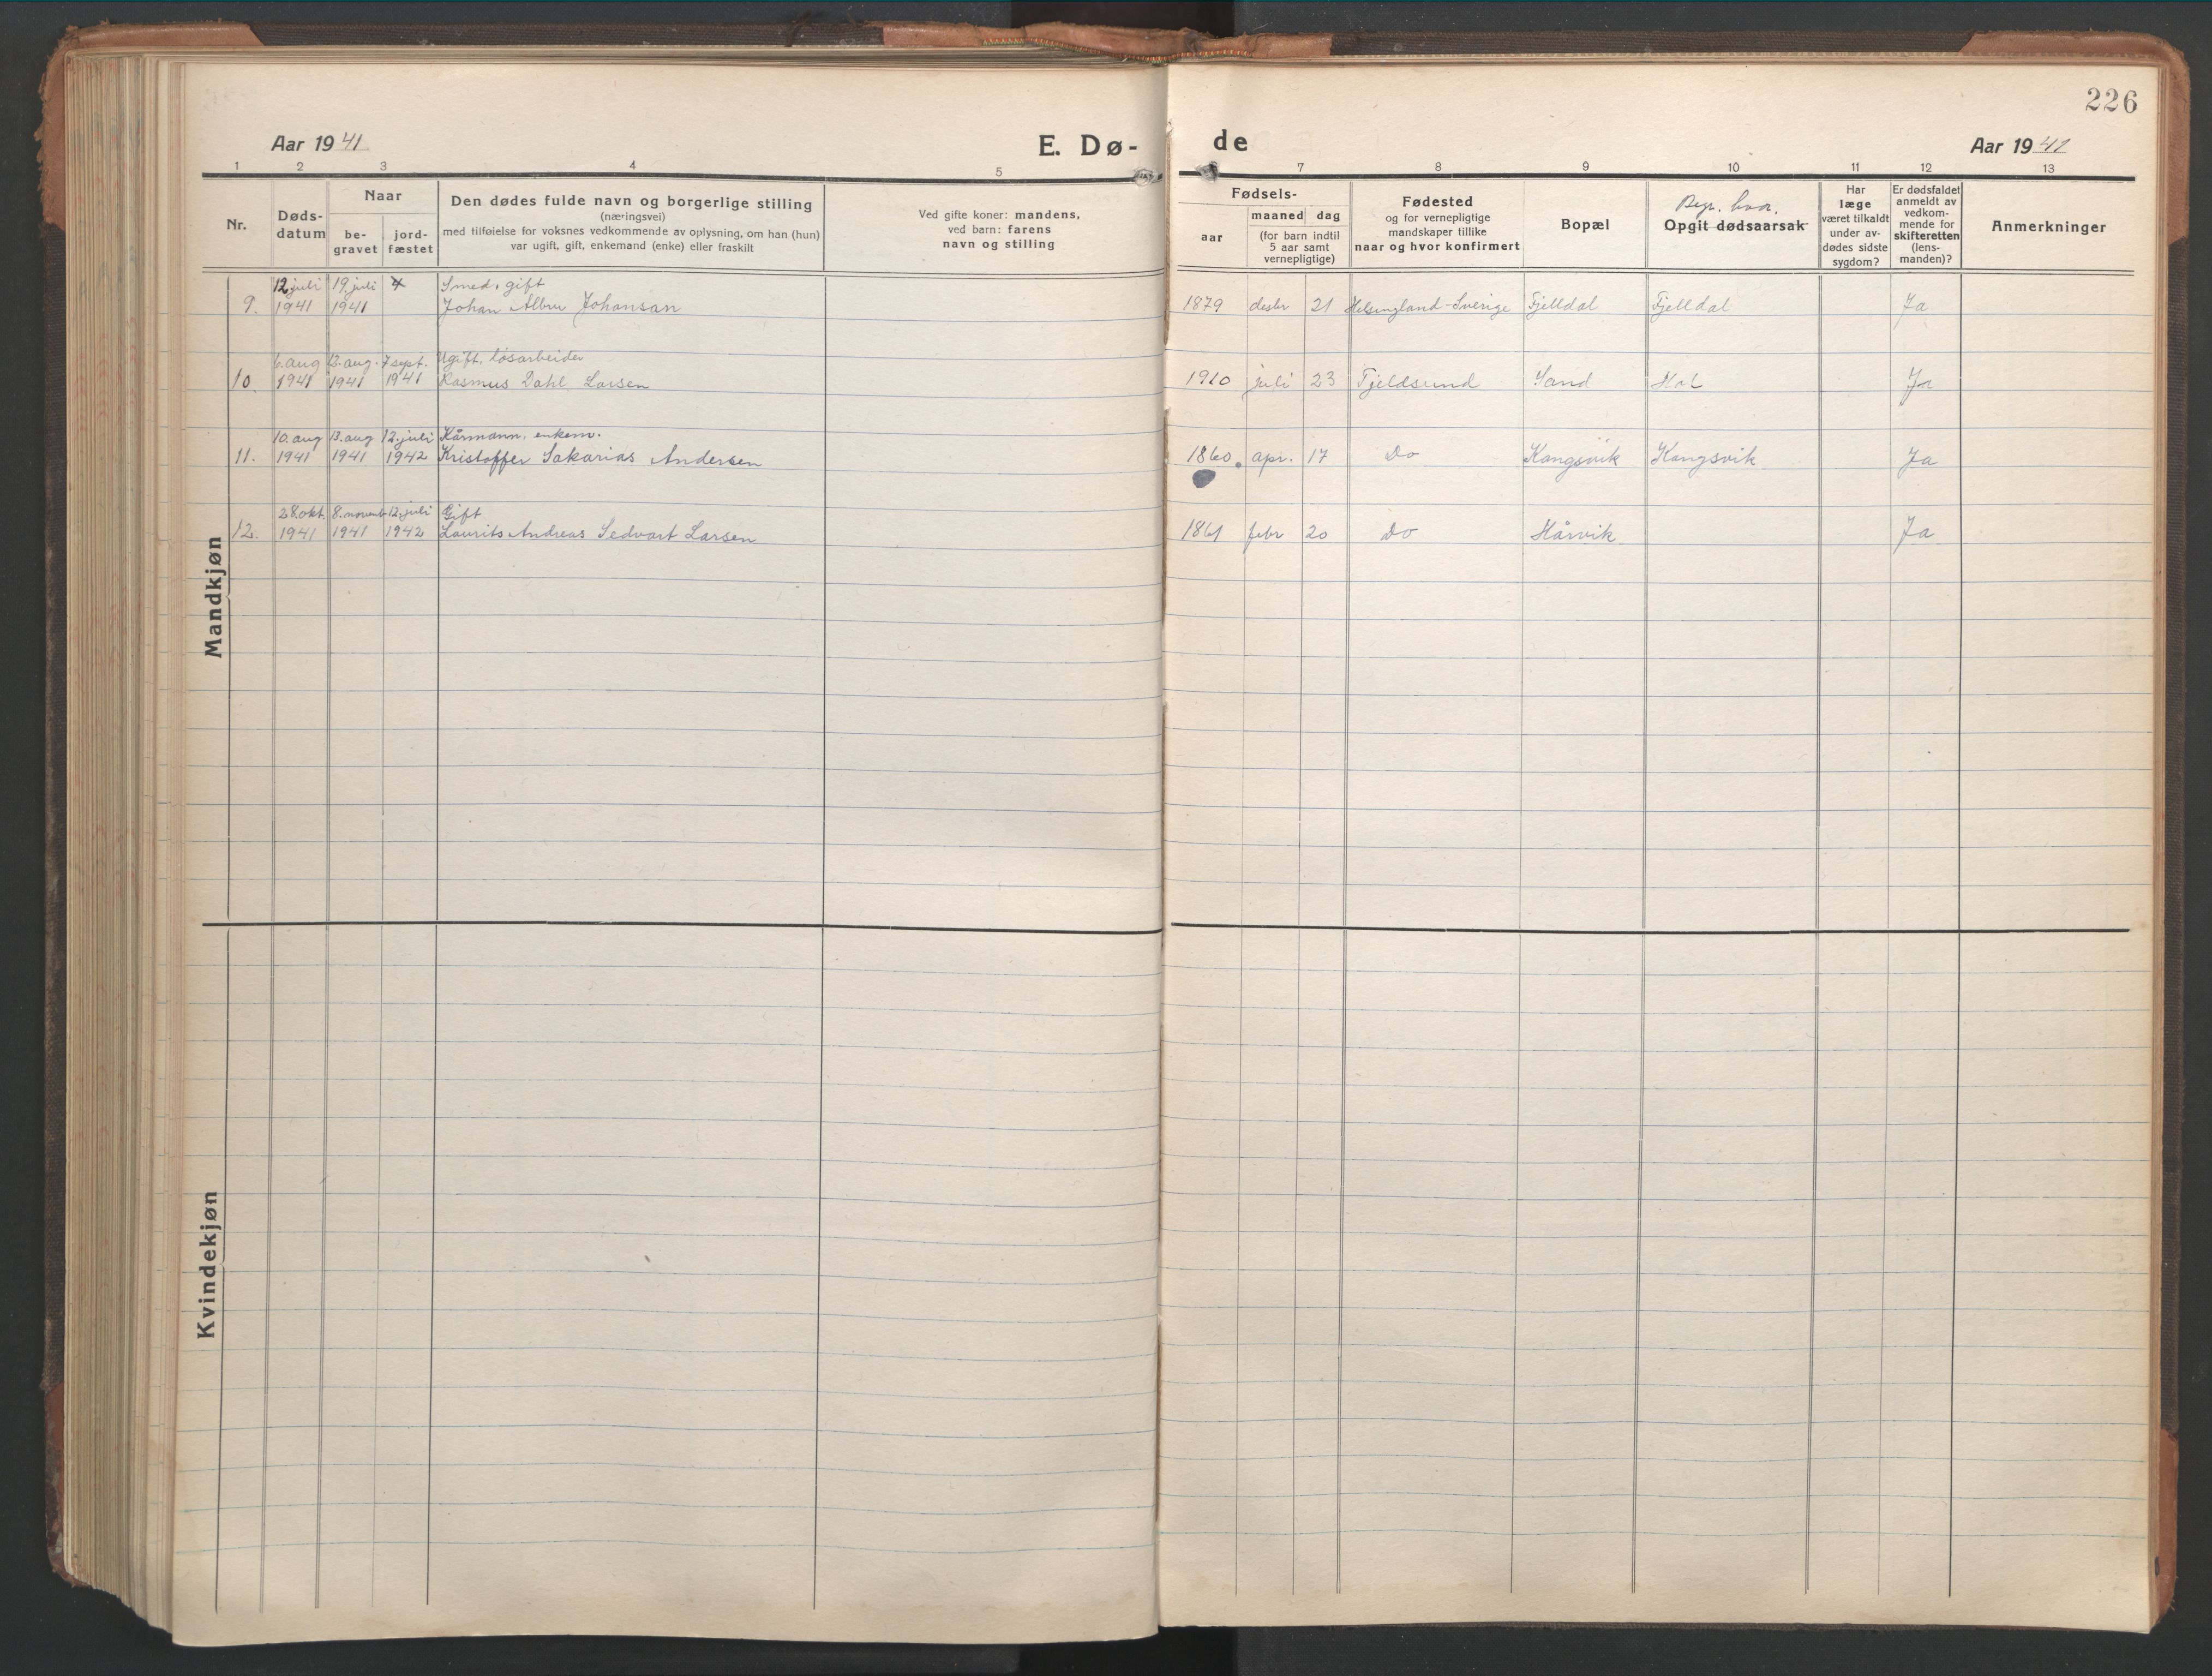 226
Aar 1941 E. Dø- de Aar 1941
1 2 3 4 5 7 8 9 10 11 12 13
Nr.
Døds-
datum
Naar
be-
gravet
jord-
fæstet
Den dødes fulde navn og borgerlige stilling
(næringsvei)
med tilføielse for voksnes vedkommende av oplysning, om han (hun)
var ugift, gift, enkemand (enke) eller fraskilt
Ved gifte koner: mandens,
ved barn: farens
navn og stilling
Fødsels-
aar
maaned dag
(for barn indtil
5 aar samt
vernepligtige)
Fødested
og for vernepligtige
mandskaper tillike
naar og hvor konfirmert
Bopæl
Begr. hvor.
Opgit dødsaarsak
Har
læge
været tilkaldt
under av-
dødes sidste
sygdom?
Er dødsfaldet
anmeldt av
vedkom-
mende for
skifteretten
(lens-
manden)?
Anmerkninger
Mandkjøn
12 juli 19. juli Smed, gift
9. 1941 1941 Johan Johansan 1879 desbr 21 Helsingland-Sverige Fjelldal Fjelldal Ja
6. aug 12. aug. 7 sept. Ugift, løsarbeider
10. 1941 1941 1941 Rasmus Dahl Larsen 1910 juli 23 Fjeldsund Sand Hol Ja
10. aug 13. aug 12. juli Kårmann, enkem.
11. 1941 1941 1942 Kristoffer Sakarias Andersen 1860. apr. 17 Do Kongsvik Kongsvik Ja
28. okt. 8. novemb 12. juli Gift
12. 1941 1941 1942 Laurits Andreas Sedvart Larsen 1861 febr 20 Do Hårvik Ja
Kvindekjøn